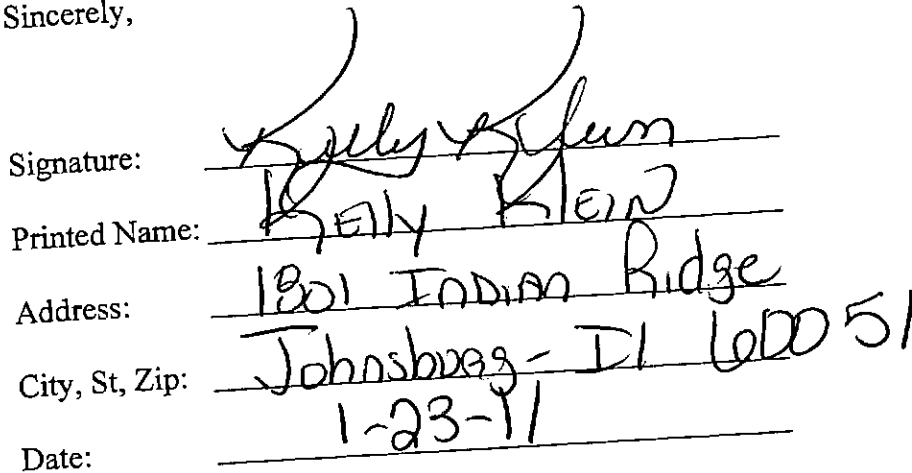 Sincerely,
Signature: Kelly Klein
Printed Name: Kelly Klein
Address: 1801 Indian Ridge
City, St, Zip: Johnsburg - Il 60051
Date: 1-23-11